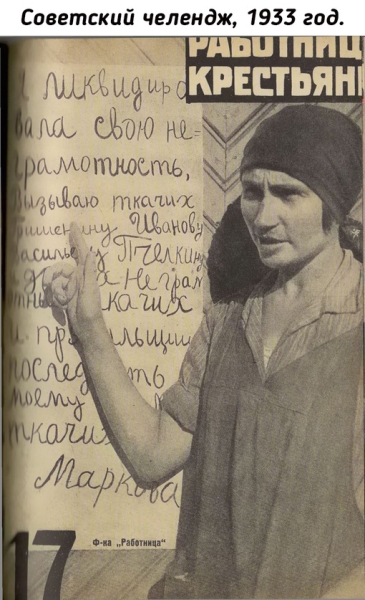 Советский челендж, 1933 год.
РАБОТНИЦ
КРЕСТЬЯН
Я ликвидиро
вала свою не=
грамотность,
Вызываю ткачих
Иванову
Пчелкину
неграм
ткачих
и
моему
ткачих
Маркова
17
Ф-ка „Работница“